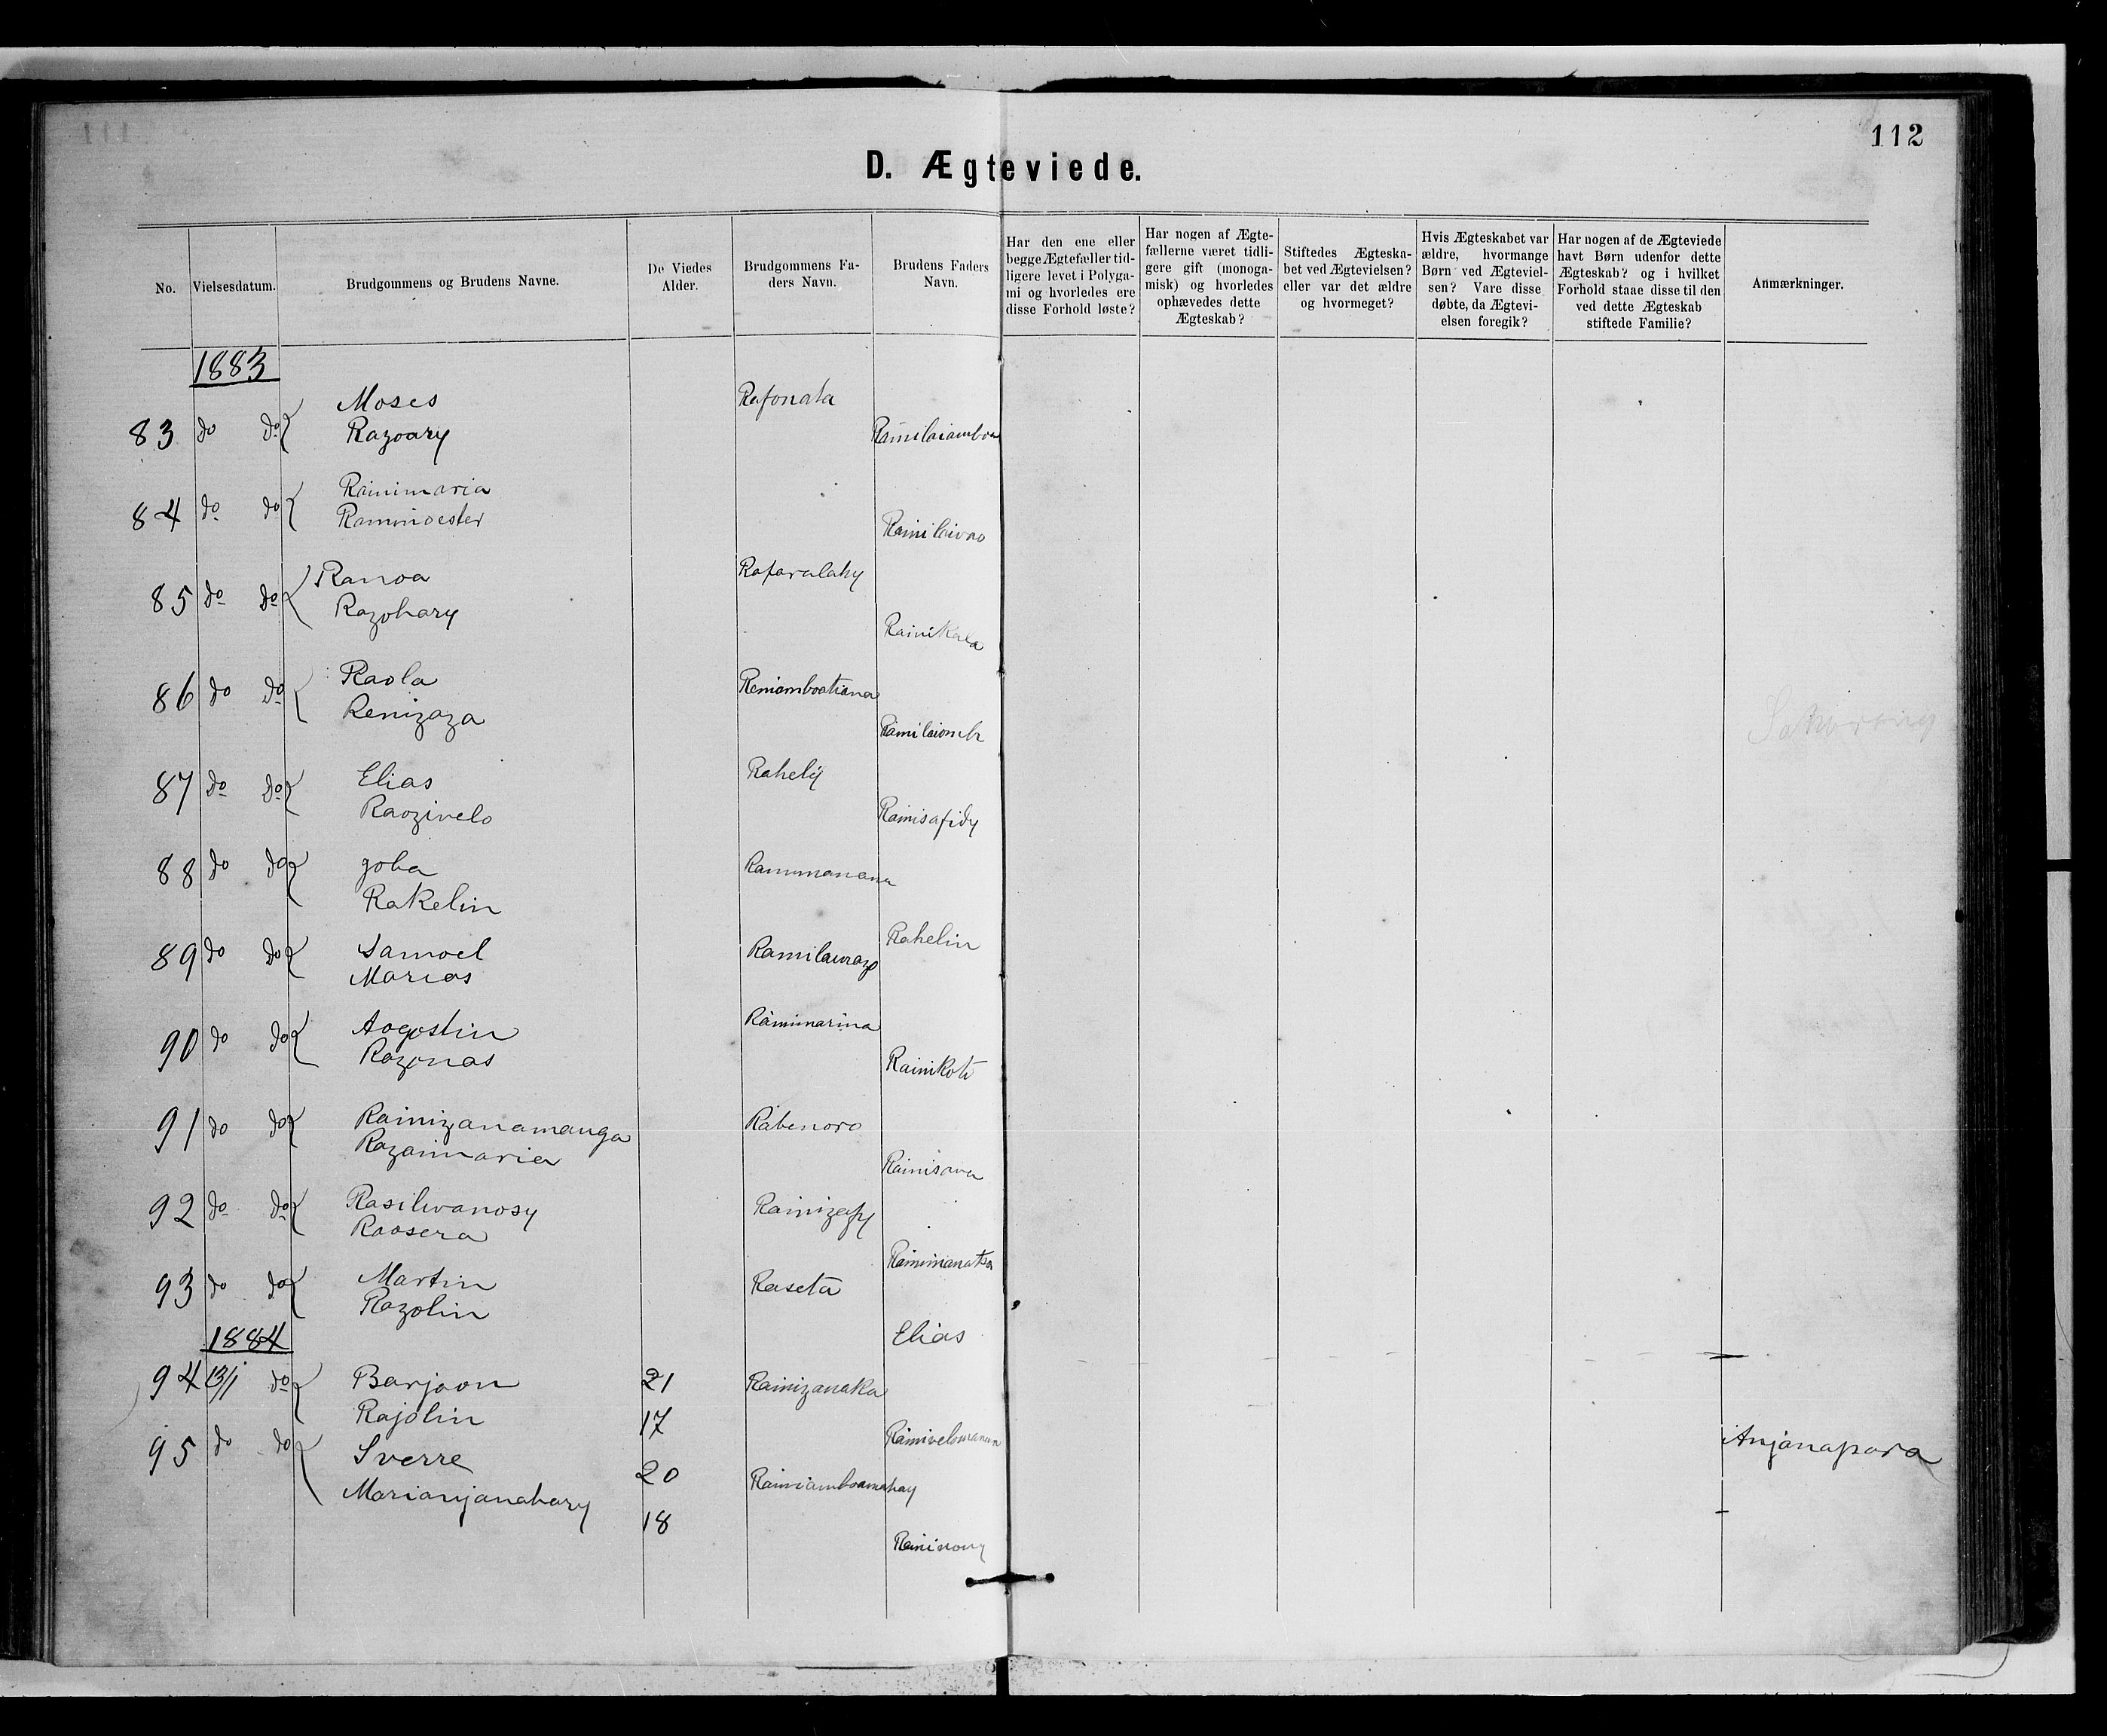 112
D. Ægteviede.
No.
Vielsesdatum.
Brudgommens og Brudens Navne.
De Viedes
Alder.
Brudgommens Fa-
ders Navn.
Brudens Faders
Navn.
Har den ene eller
begge Ægtefæller tid-
ligere levet i Polyga-
mi og hvorledes ere
disse Forhold løste?
Har nogen af Ægte-
fællerne været tidli-
gere gift (monoga-
misk) og hvorledes
ophævedes dette
Ægteskab?
Stiftedes Ægteska-
bet ved Ægtevielsen?
eller var det ældre
og hvormeget?
Hvis Ægteskabet var
ældre, hvormange
Børn ved Ægteviel-
sen? Vare disse
døbte, da Ægtevi-
elsen foregik?
Har nogen af de Ægteviede
havt Børn udenfor dette
Ægteskab? og i hvilket
Forhold staae disse til den
ved dette Ægteskab
stiftede Familie?
Anmærkninger.
1883
Moses Rafonala
83 do do Razoary Rainilaiamboa
Rainimaria
84 do do Raminoester Rainilaivao
Ranoa Rafaralahy
85 do do Razohary Rainikala
Raola Reniamboatiana
86 do do Renizaza Rainilaiomb
Elias Rahely
87 do do Raozivelo Rainisafidy
88 do do Joba Raminanana
Rakelin Rahelin
89 do do Samoel
Marias
90 do do Aogostin Rainimarina
Razonas Rainikoto
91 do do Rainizanamanga Rabenoro
Razaimaria Rainisava
92 do do Rasilivanosy Rainizafy
Raosera Rainimanatsa
93 do do Martin Raseta
Razolin Elias
1884
94 13/1 do Barjaon 21 Rainizanaka
Rajolin 17
95 do do Sverre 20 Rainiamboamahay Anjanapara
Marianjanahary 18 Raininony